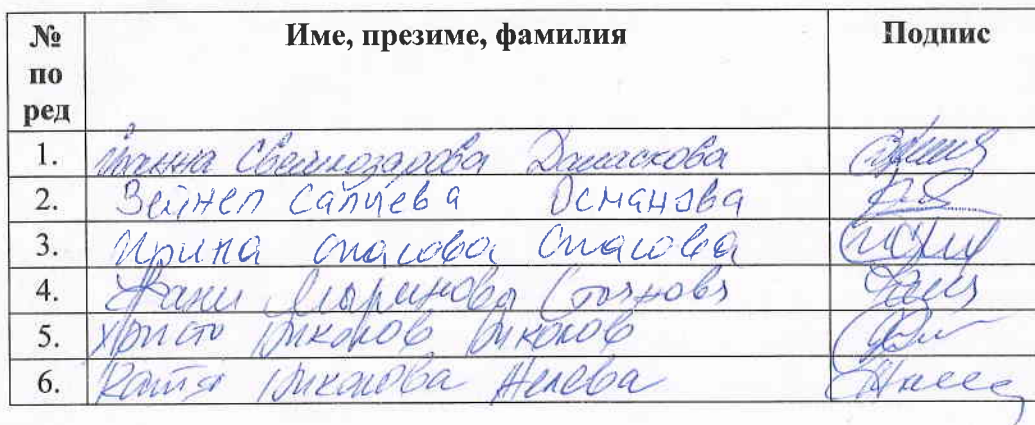 № по ред Име, презиме, фамилия Подпис
1. Иванна Светлозарова Дамаскова
2. Зейнеп Салиева Османова
3. Ирина Спасова Спасова
4. Маринова Стоянова
5. Христо Николов Николов
6. Катя Николова Желева